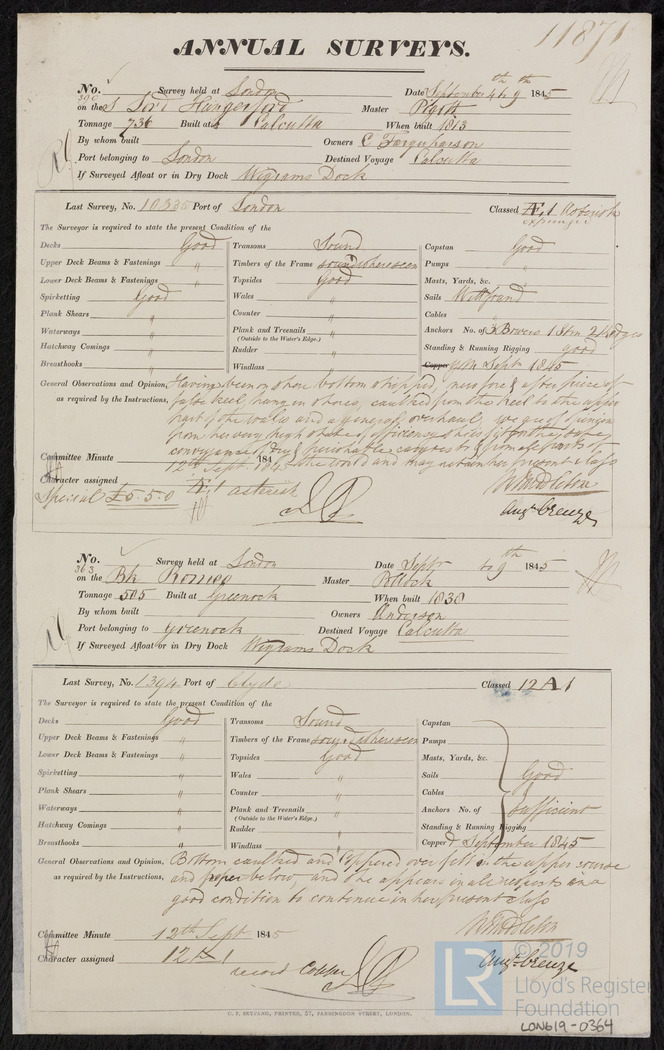 11871
ANNUAL SURVEYS.
No. 390 Survey held at London Date September 4th 9th 1845
on the S Lord Hungerford Master Pigott
Tonnage 736 Built at Calcutta When built 1813
By whom built Owners C Farquharson
Port belonging to London Destined Voyage Calcutta
If Surveyed Afloat or in Dry Dock Wigrams Dock
Last Survey, No. 10335 Port of London Classed Æ 1 asterisk
expunged
The Surveyor is required to state the present Condition of the
Decks Good Transoms Sound Capstan Good
Upper Deck Beams & Fastenings " Timbers of the Frame sound where seen Pumps "
Lower Deck Beams & Fastenings " Topsides Good Masts, Yards, &c. "
Spirketting Good Wales " Sails Well found
Plank Shears " Counter " Cables "
Waterways " Plank and Treenails " Anchors No. of 3 Bowers 1 Strm 2 Kedges
(Outside to the Water's Edge.)
Hatchway Comings " Rudder " Standing & Running Rigging good
Breasthooks " Windlass " Copper Sept 1845
General Observations and Opinion, Having been on shore bottom stripped, new fore & after piece of
as required by the Instructions, false keel, hung in shores, caulked from the keel to the upper
part of the wales and a general overhaul, we are of opinion
from her very high state of efficiency she is fit for the safe
conveyance of dry & perishable cargoes to & from all parts of
the world and may retain her present class
Committee Minute 12th Sept 1845
Character assigned Æ 1 asterisk
Special £5.5.0
W Middleton
Augn Creuze
No. 363 Survey held at London Date Septr 4 9th 1845
on the Bk Romeo Master Pollock
Tonnage 505 Built at Greenock When built 1838
By whom built Owners Anderson
Port belonging to Greenock Destined Voyage Calcutta
If Surveyed Afloat or in Dry Dock Wigrams Dock
Last Survey, No. 1394 Port of Clyde Classed 12 A 1
The Surveyor is required to state the present Condition of the
Decks Good Transoms Sound Capstan
Upper Deck Beams & Fastenings " Timbers of the Frame sound where seen Pumps
Lower Deck Beams & Fastenings " Topsides Good Masts, Yards, &c.
Spirketting " Wales " Sails Good
Plank Shears " Counter " Cables &
Waterways " Plank and Treenails " Anchors No. of Sufficient
(Outside to the Water's Edge.)
Hatchway Comings " Rudder " Standing & Running Rigging
Breasthooks " Windlass " Coppered September 1845
General Observations and Opinion, Bottom caulked and Coppered over felt on the upper course
as required by the Instructions, and paper below, and she appears in all respects in a
good condition to continue in her present class
Committee Minute 12th Sept 1845
Character assigned 12 A 1
record Copper
W Middleton
Augn Creuze
C. F. SEYFANG, PRINTED, 57, FARRINGDON STREET, LONDON.
LR
© 2019
Lloyd's Register
Foundation
LON619-0364